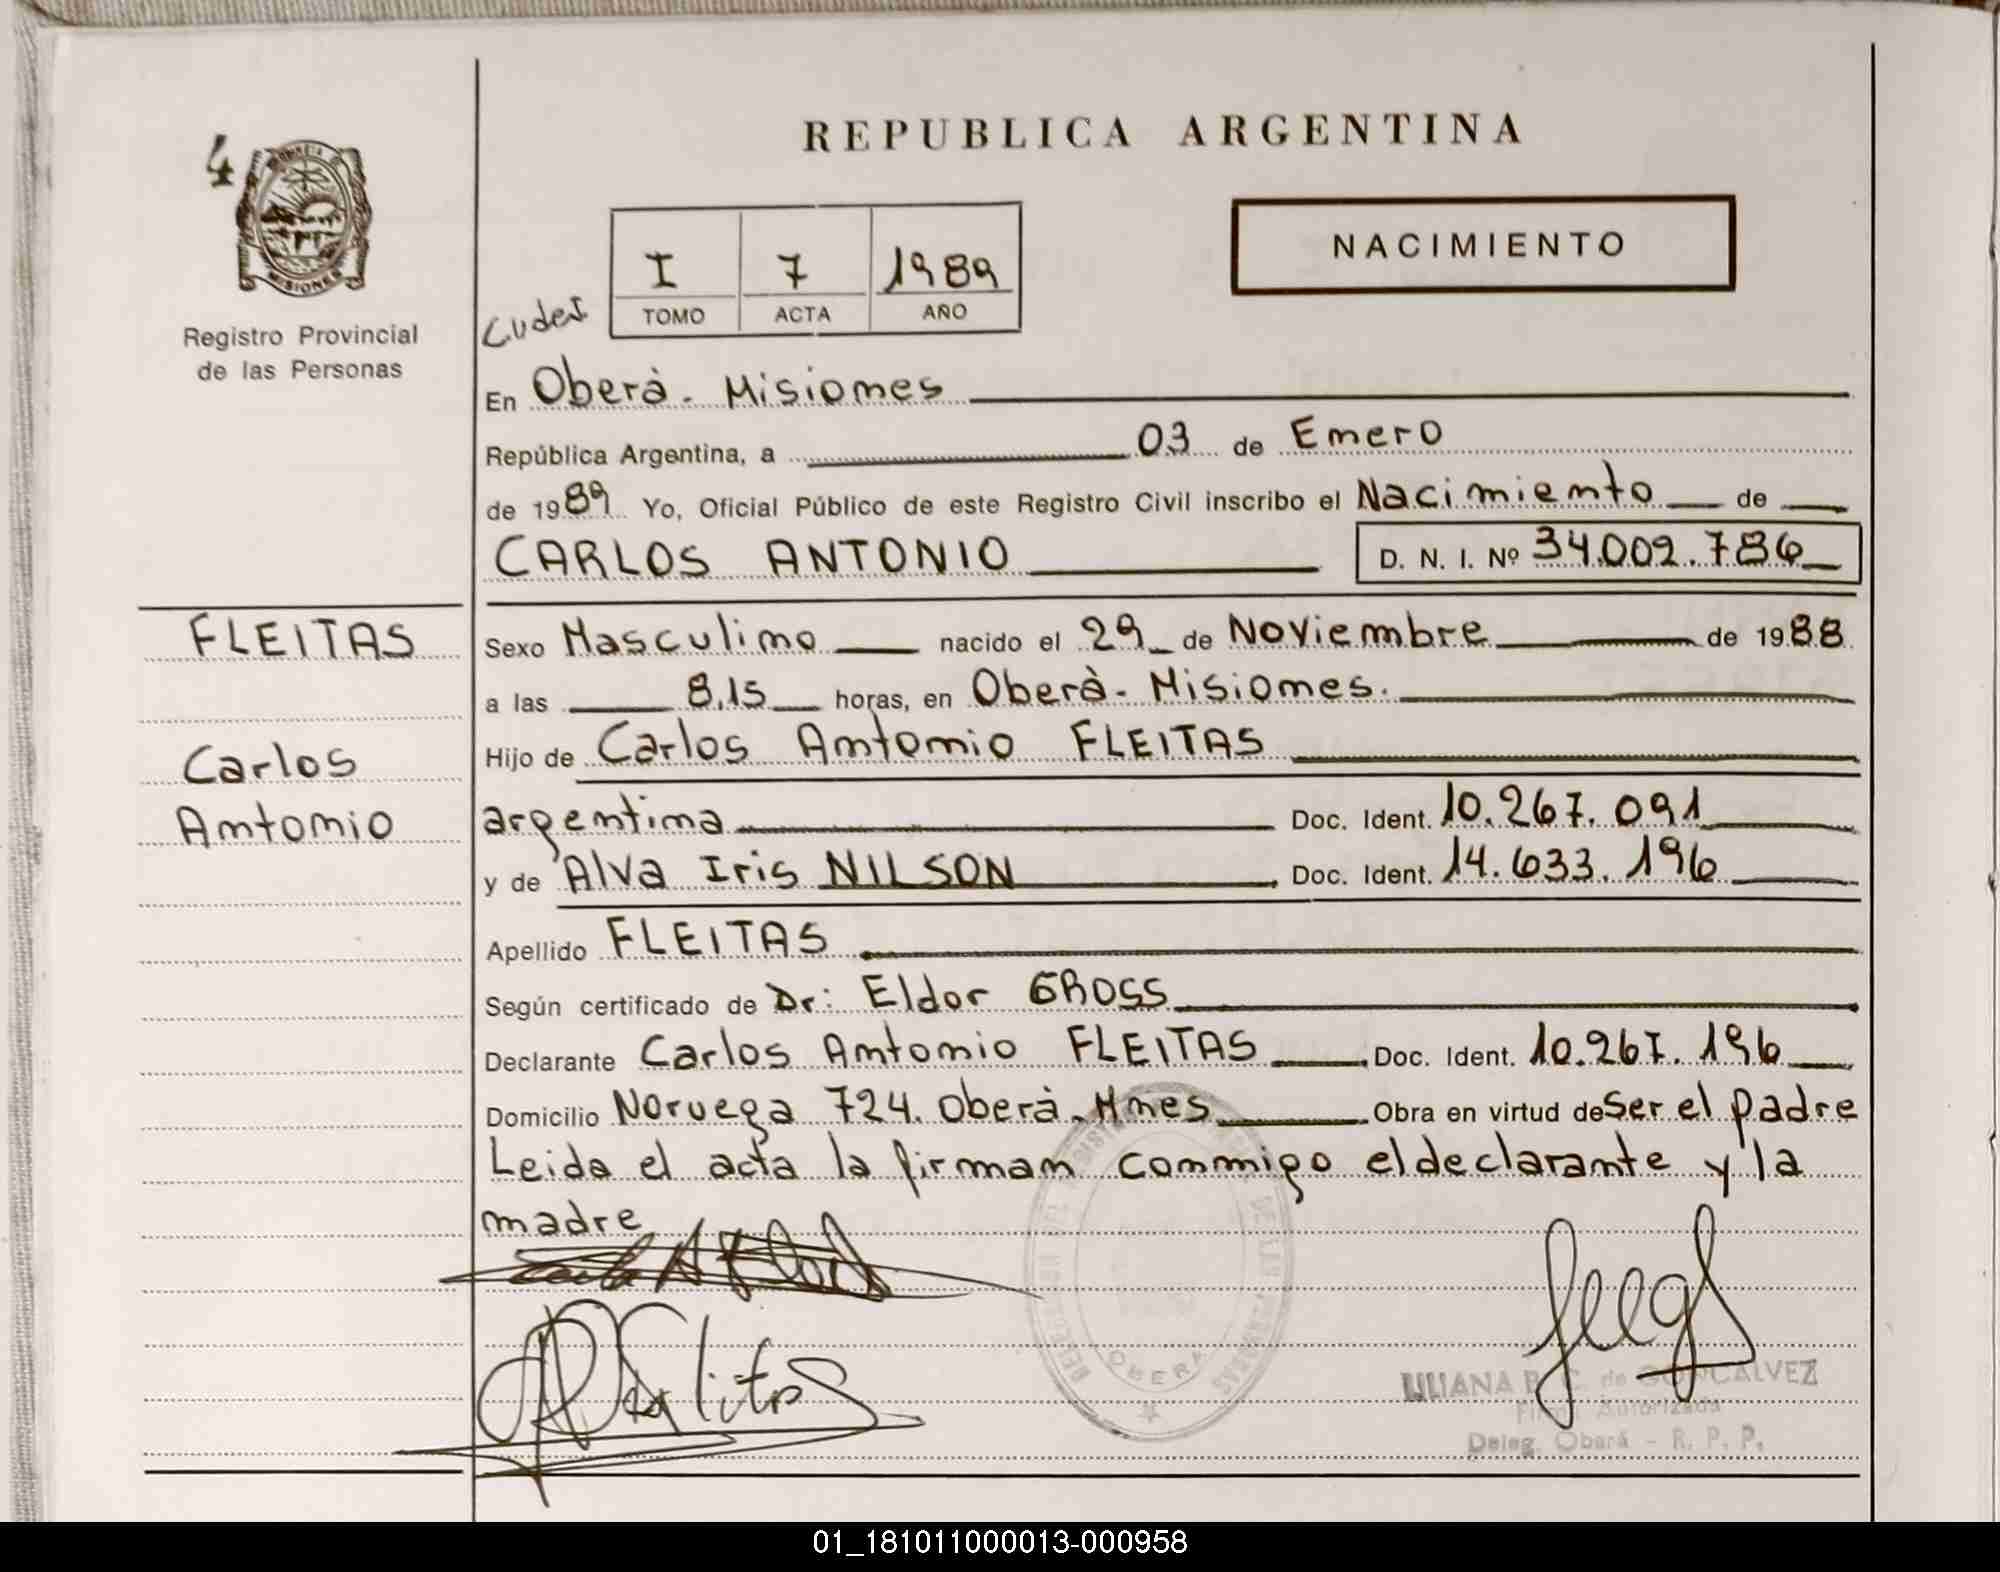 4
Registro Provincial
de las Personas
FLEITAS
Carlos
Antonio
REPUBLICA ARGENTINA
I 7 1989
TOMO ACTA AÑO
NACIMIENTO
En Oberà - Misiones
República Argentina, a 03 de Enero
de 1989 Yo, Oficial Público de este Registro Civil inscribo el Nacimiento de
CARLOS ANTONIO D. N. I. Nº 34.002.786
Sexo Masculino nacido el 29 de Noviembre de 1988
a las 8,15 horas, en Oberà - Misiones.
Hijo de Carlos Antonio FLEITAS
argentina Doc. Ident. 10.267.091
y de Alva Iris NILSON Doc. Ident. 14.633.196
Apellido FLEITAS
Según certificado de Dr: Eldor GROSS
Declarante Carlos Antonio FLEITAS Doc. Ident. 10.267.196
Domicilio Noruega 724. Oberà - Mnes Obra en virtud de Ser el padre
Leida el acta la firman conmigo el declarante y la
madre
OBERA
LILIANA R. C. de GONCALVEZ
Firma Autorizada
Deleg. Oberá - R. P. P.
01_181011000013-000958